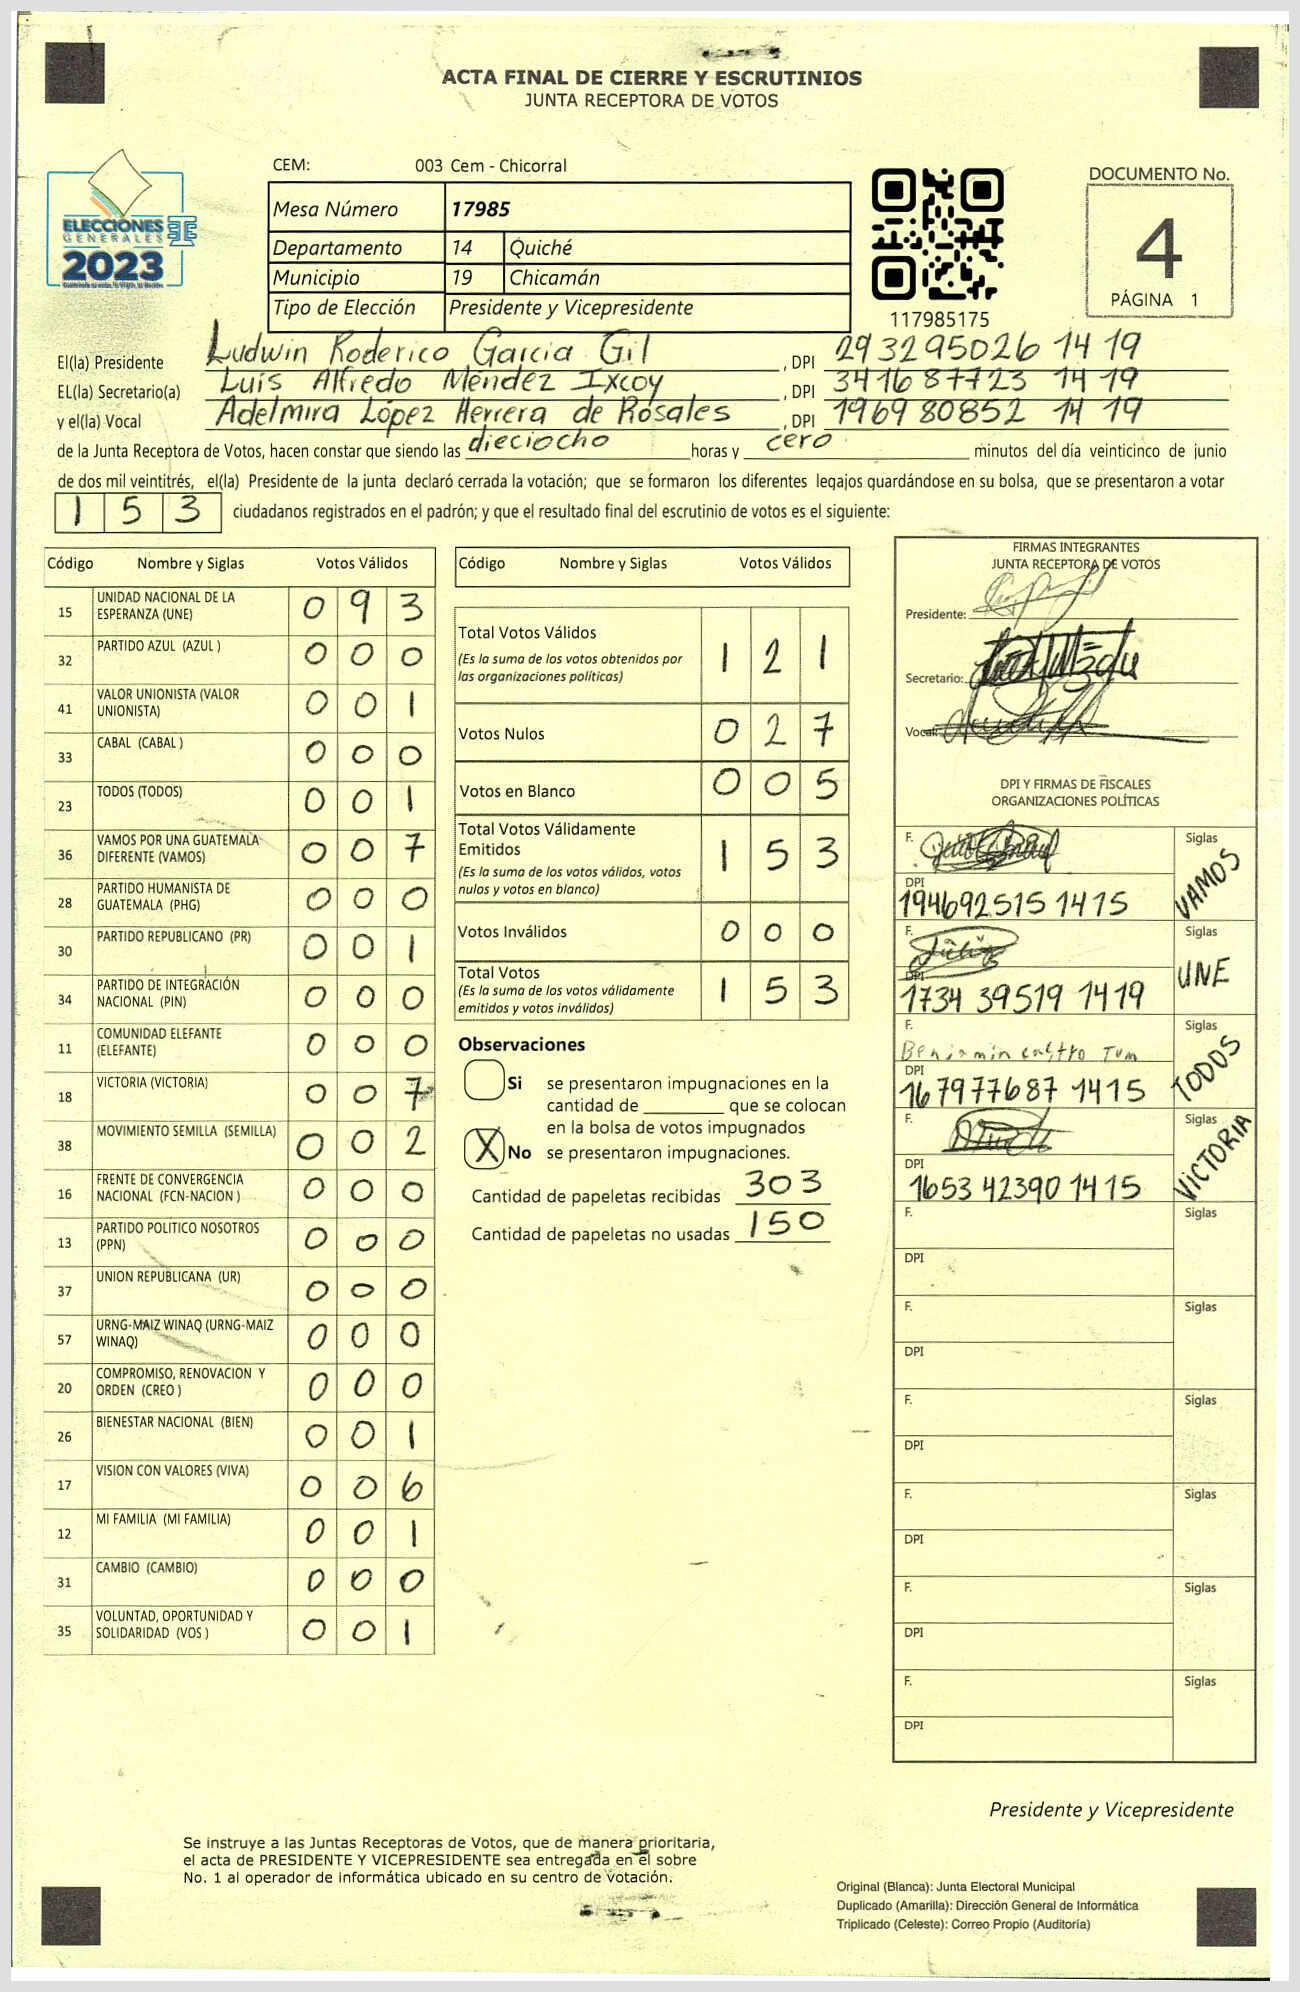 ACTA FINAL DE CIERRE Y ESCRUTINIOS
JUNTA RECEPTORA DE VOTOS
ELECCIONES
GENERALES
2023
CEM: 003 Cem - Chicorral
Mesa Número 17985
Departamento 14 Quiché
Municipio 19 Chicamán
Tipo de Elección Presidente y Vicepresidente
117985175
DOCUMENTO No.
4
PÁGINA 1
El(la) Presidente Ludwin Roderico Garcia Gil , DPI 293295026 14 19
EL(la) Secretario(a) Luis Alfredo Méndez Ixcoy , DPI 341687723 14 19
y el(la) Vocal Adelmira López Herrera de Rosales , DPI 196980852 14 19
de la Junta Receptora de Votos, hacen constar que siendo las dieciocho horas y cero minutos del día veinticinco de junio
de dos mil veintitrés, el(la) Presidente de la junta declaró cerrada la votación; que se formaron los diferentes legajos guardándose en su bolsa, que se presentaron a votar
1 5 3 ciudadanos registrados en el padrón; y que el resultado final del escrutinio de votos es el siguiente:
Código Nombre y Siglas Votos Válidos
15 UNIDAD NACIONAL DE LA ESPERANZA (UNE) 0 9 3
32 PARTIDO AZUL (AZUL ) 0 0 0
41 VALOR UNIONISTA (VALOR UNIONISTA) 0 0 1
33 CABAL (CABAL ) 0 0 0
23 TODOS (TODOS) 0 0 1
36 VAMOS POR UNA GUATEMALA DIFERENTE (VAMOS) 0 0 7
28 PARTIDO HUMANISTA DE GUATEMALA (PHG) 0 0 0
30 PARTIDO REPUBLICANO (PR) 0 0 1
34 PARTIDO DE INTEGRACIÓN NACIONAL (PIN) 0 0 0
11 COMUNIDAD ELEFANTE (ELEFANTE) 0 0 0
18 VICTORIA (VICTORIA) 0 0 7
38 MOVIMIENTO SEMILLA (SEMILLA) 0 0 2
16 FRENTE DE CONVERGENCIA NACIONAL (FCN-NACION ) 0 0 0
13 PARTIDO POLITICO NOSOTROS (PPN) 0 0 0
37 UNION REPUBLICANA (UR) 0 0 0
57 URNG-MAIZ WINAQ (URNG-MAIZ WINAQ) 0 0 0
20 COMPROMISO, RENOVACION Y ORDEN (CREO ) 0 0 0
26 BIENESTAR NACIONAL (BIEN) 0 0 1
17 VISION CON VALORES (VIVA) 0 0 6
12 MI FAMILIA (MI FAMILIA) 0 0 1
31 CAMBIO (CAMBIO) 0 0 0
35 VOLUNTAD, OPORTUNIDAD Y SOLIDARIDAD (VOS ) 0 0 1
Código Nombre y Siglas Votos Válidos
Total Votos Válidos 1 2 1
(Es la suma de los votos obtenidos por
las organizaciones políticas)
Votos Nulos 0 2 7
Votos en Blanco 0 0 5
Total Votos Válidamente
Emitidos 1 5 3
(Es la suma de los votos válidos, votos
nulos y votos en blanco)
Votos Inválidos 0 0 0
Total Votos 1 5 3
(Es la suma de los votos válidamente
emitidos y votos inválidos)
Observaciones
Si se presentaron impugnaciones en la
cantidad de ________ que se colocan
en la bolsa de votos impugnados
X No se presentaron impugnaciones.
Cantidad de papeletas recibidas 303
Cantidad de papeletas no usadas 150
FIRMAS INTEGRANTES
JUNTA RECEPTORA DE VOTOS
Presidente:
Secretario:
Vocal:
DPI Y FIRMAS DE FISCALES
ORGANIZACIONES POLÍTICAS
F. Siglas VAMOS
DPI
194692515 1415
F. Siglas UNE
DPI
1734 39519 1419
F. Siglas TODOS
Benjamin castro Tum
DPI
167977687 1415
F. Siglas VICTORIA
DPI
1653 42390 1415
F. Siglas
DPI
F. Siglas
DPI
F. Siglas
DPI
F. Siglas
DPI
F. Siglas
DPI
F. Siglas
DPI
Presidente y Vicepresidente
Se instruye a las Juntas Receptoras de Votos, que de manera prioritaria,
el acta de PRESIDENTE Y VICEPRESIDENTE sea entregada en el sobre
No. 1 al operador de informática ubicado en su centro de votación.
Original (Blanca): Junta Electoral Municipal
Duplicado (Amarilla): Dirección General de Informática
Triplicado (Celeste): Correo Propio (Auditoría)